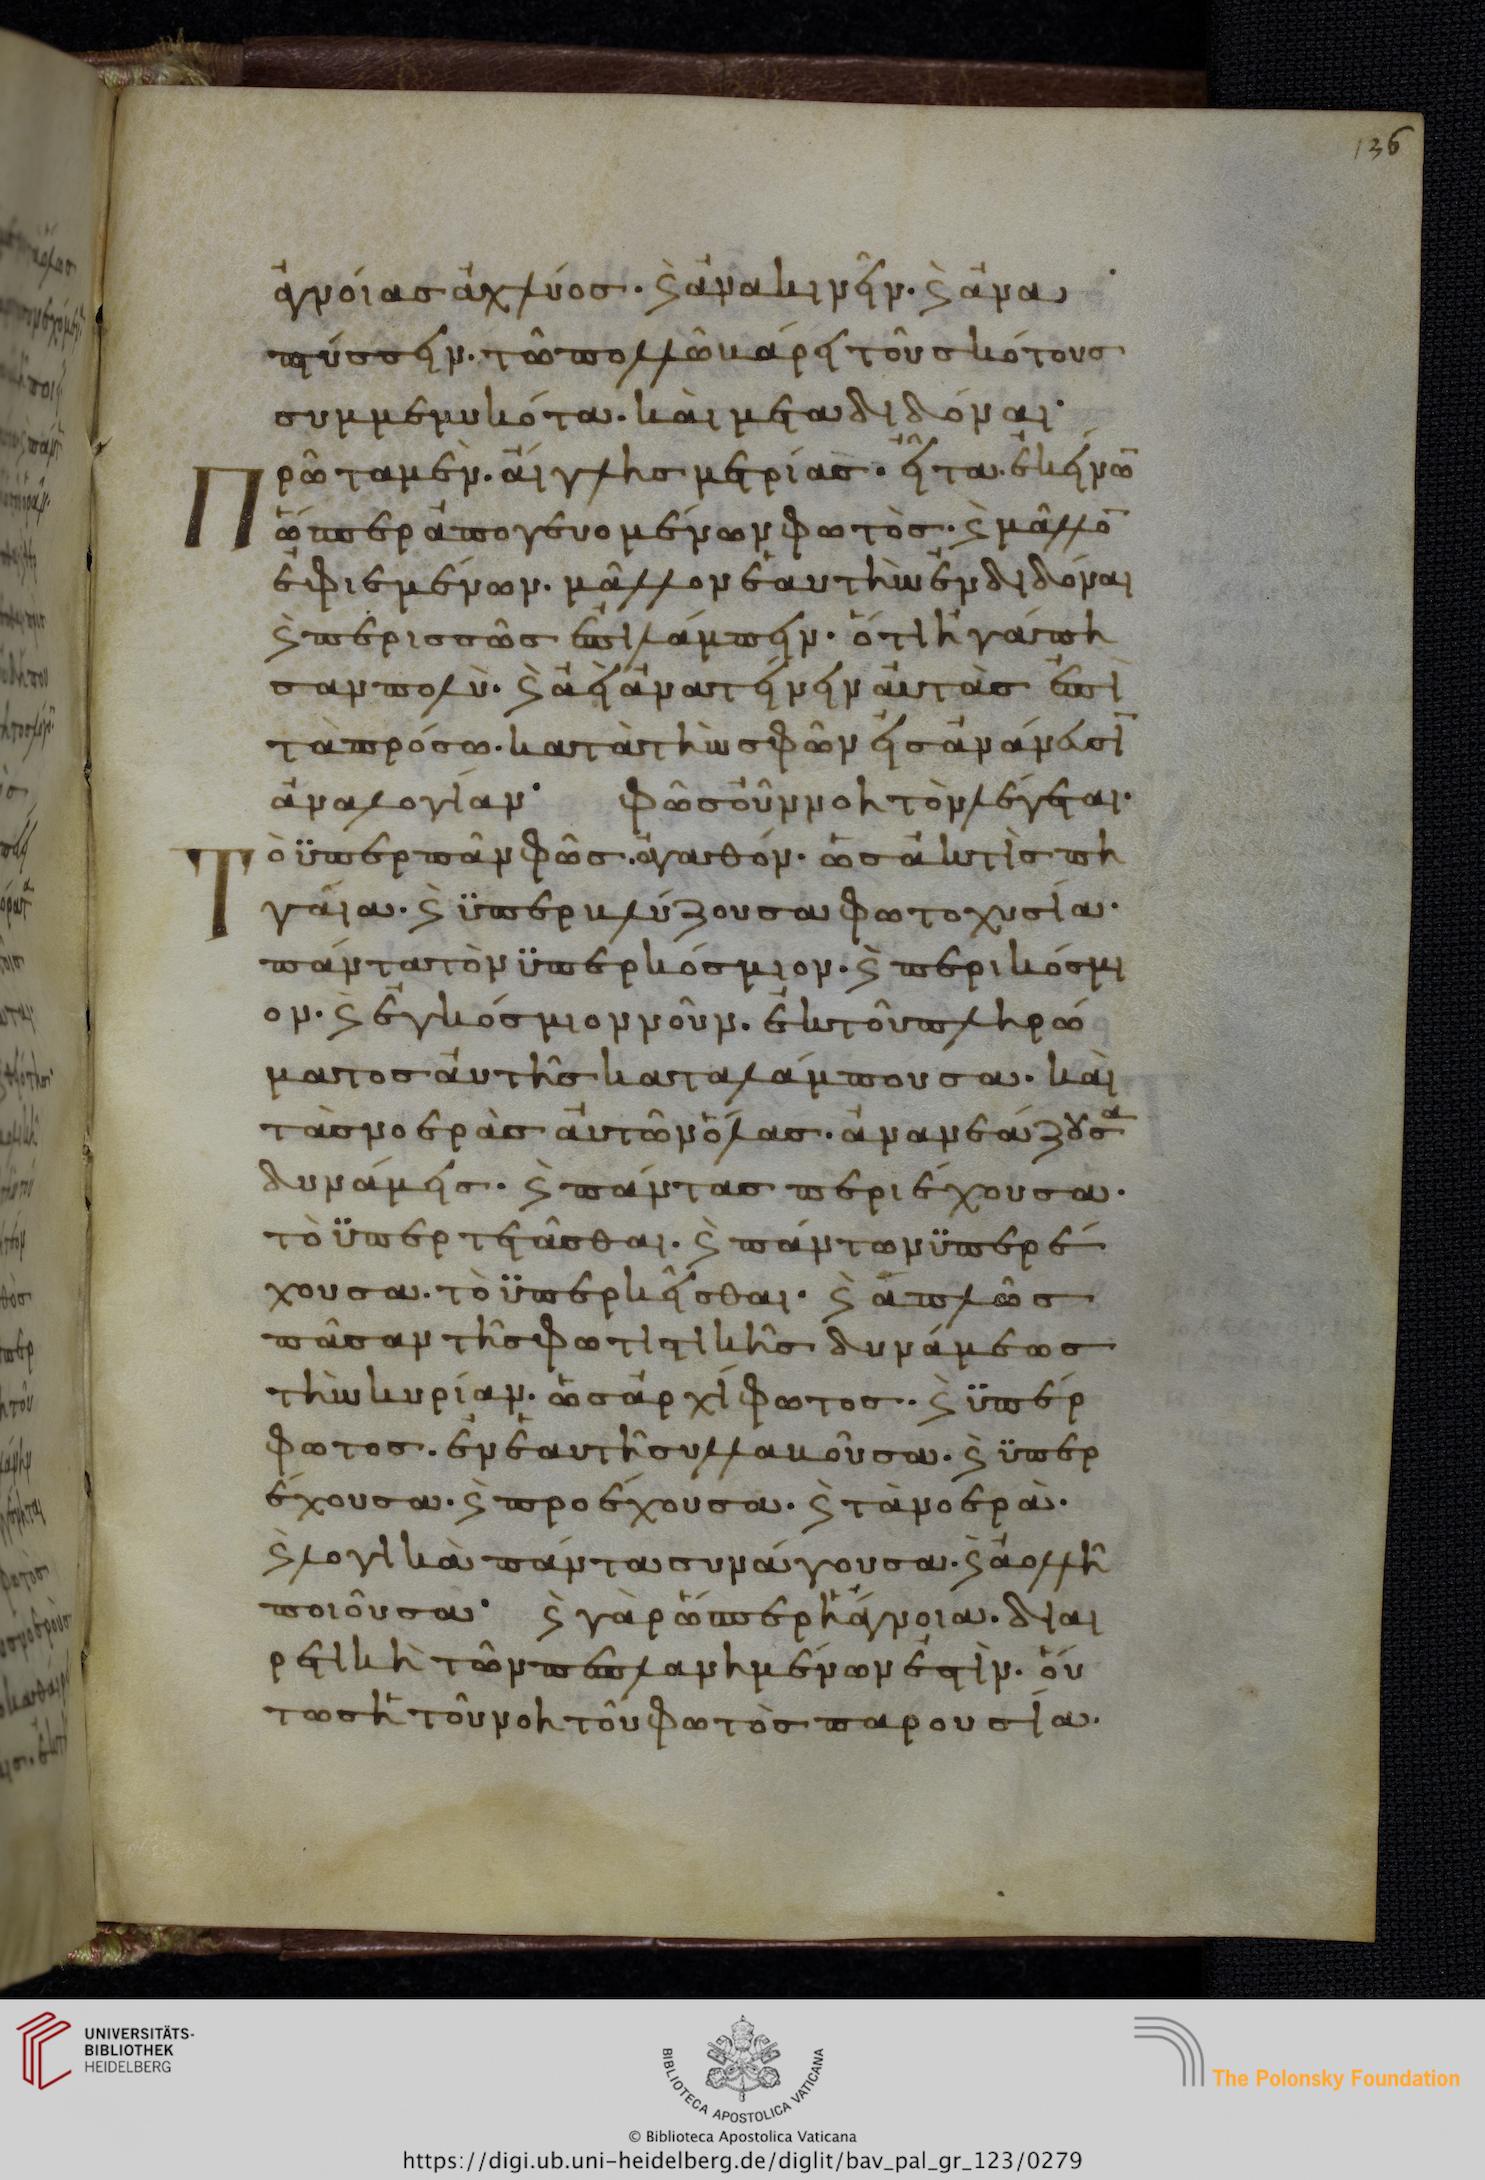 136
ἀγνοίας ἀχλύος· ϗ ἀνακινεῖν· ϗ ἀνα
πτύσσειν· τῶ πολλῶ βάρει τοῦ σκότους
συμμεμυκότα· καὶ μεταδιδόναι·
Πρῶτα μὲν· αἴγλης μετρίας· εἶτα ἐκείνων
ὥσπερ ἀπογευομένων φωτὸς· ϗ μᾶλλον
ἐφιεμένων· μᾶλλον ἑαυτὴν ἐνδιδόναι
ϗ περισσῶς ἐπιλάμπειν· ὅτι ἠγάπη
σαν πολὺ· ϗ ἀεὶ ἀνατείνειν αὐτὰς ἐπὶ
τὰ πρόσω· κατὰ τὴν σφῶν εἰς ἀνάνευσιν
ἀναλογίαν· Φῶς οὖν νοητὸν λέγεται·
Τὸ ὑπὲρ πᾶν φῶς ἀγαθόν· ὡς ἀκτὶς πη
γαία· ϗ ὑπερβλύζουσα φωτοχυσία·
πάντα τὸν ὑπερκόσμιον· ϗ περικόσμι
ον· ϗ ἐγκόσμιον νοῦν· ἐκ τοῦ πληρώ
ματος αὐτῆς καταλάμπουσα· καὶ
τὰς νοερὰς αὐτῶν ὅλας· ἀνανεάζουσα
δυνάμεις· ϗ πάντας περιέχουσα·
τὸ ὑπερτετᾶσθαι· ϗ πάντων ὑπερέ
χουσα· τὸ ὑπερκεῖσθαι· ϗ ἁπλῶς
πᾶσαν τῆς φωτιστικῆς δυνάμεως
τὴν κυρίαν· ὡς ἀρχίφωτος· ϗ ὑπέρ
φωτος· ἐν ἑαυτῆ συλλαβοῦσα· ϗ ὑπερ
έχουσα· ϗ προέχουσα· ϗ τὰ νοερὰ·
ϗ λογικὰ πάντα συνάγουσα· ϗ ἀολλῆ
ποιοῦσα· ϗ γὰρ ὥσπερ ἡ ἄγνοια· διαι
ρετικὴ τῶν πεπλανημένων ἐστὶν· οὕ
τως ἡ τοῦ νοητοῦ φωτὸς παρουσία·
UNIVERSITÄTS-
BIBLIOTHEK
HEIDELBERG
BIBLIOTECA APOSTOLICA VATICANA
The Polonsky Foundation
© Biblioteca Apostolica Vaticana
https://digi.ub.uni-heidelberg.de/diglit/bav_pal_gr_123/0279